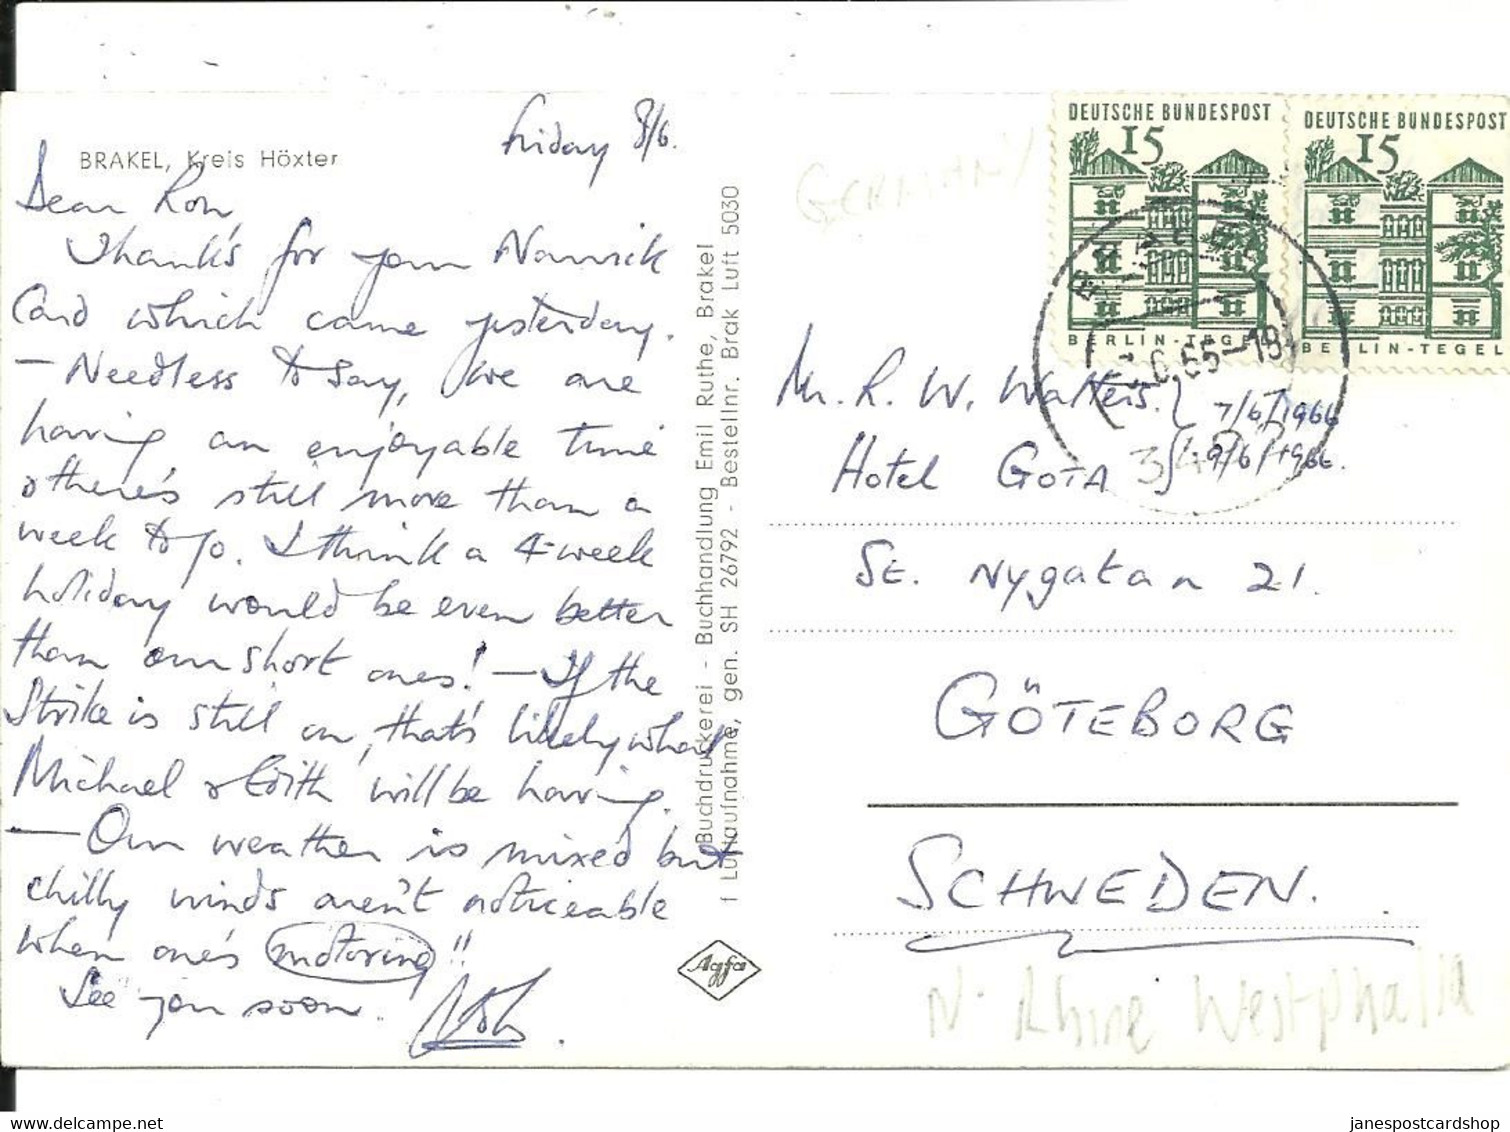 BRAKEL, Kreis Höxter
Friday 3/6.
Dear Ron,
Thanks for your Narvik
Card which came yesterday.
– Needless to say, we are
having an enjoyable time
& there's still more than a
week to go. I think a 4-week
holiday would be even better
than our short ones! – If the
Strike is still on, that's likely what
Michael & Edith will be having.
– Our weather is mixed but
chilly winds aren't noticeable
when one's motoring!!
See you soon.
Buchdruckerei - Buchhandlung Emil Ruthe, Brakel
1 Luftaufnahme, gen. SH 26792 - Bestellnr. Brak Luft 5030
Agfa
GERMANY
DEUTSCHE BUNDESPOST
15
BERLIN-TEGEL
DEUTSCHE BUNDESPOST
15
BERLIN-TEGEL
Mr. R. W. Walters. 7/6/1966
Hotel GOTA 9/6/1966.
St. Nygatan 21.
GÖTEBORG
SCHWEDEN.
N. Rhine Westphalia
www.delcampe.net
janespostcardshop